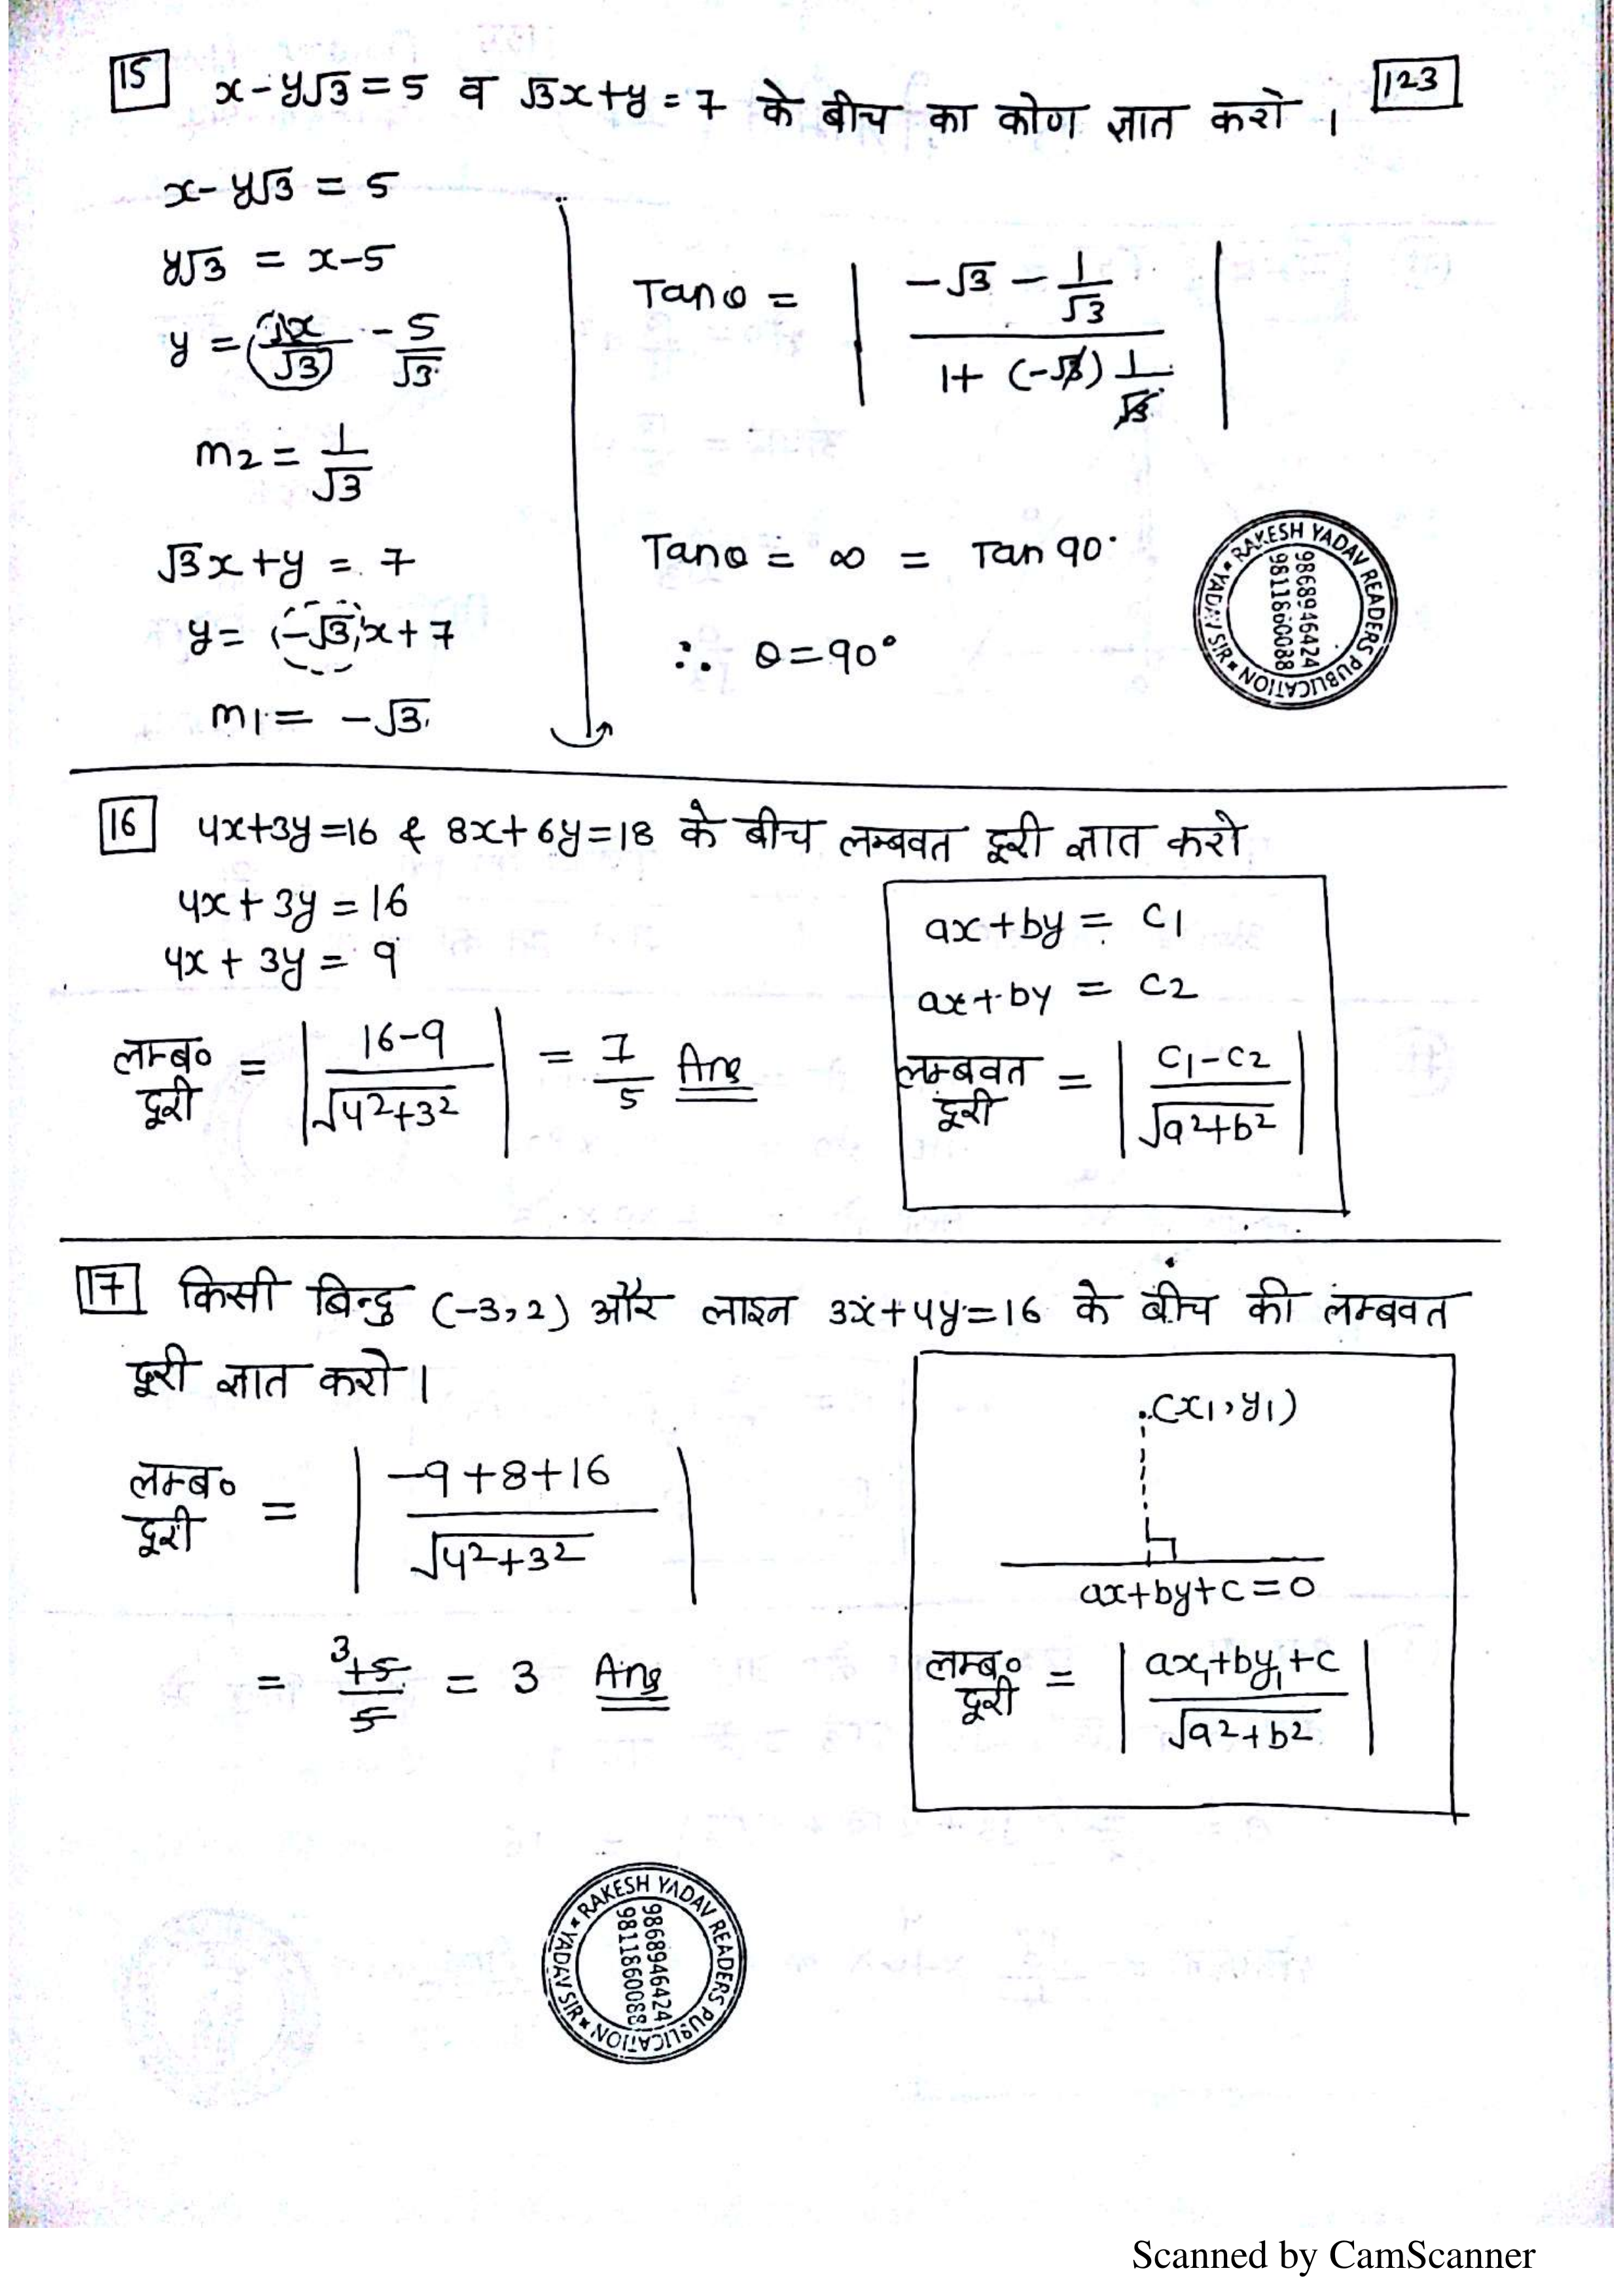 15 x-y√3=5 व √3x+y=7 के बीच का कोण ज्ञात करो । 123
x-y√3 = 5
y√3 = x-5
y = 1x/√3 - 5/√3
m2 = 1/√3
√3x+y = 7
y = (-√3)x+7
m1 = -√3
Tanθ = | (-√3 - 1/√3) / (1+(-√3) 1/√3) |
Tanθ = ∞ = Tan 90°
∴ θ=90°
RAKESH YADAV READERS PUBLICATION YADAV SIR
9868946424
9811860088
16 4x+3y=16 & 8x+6y=18 के बीच लम्बवत दूरी ज्ञात करो
4x+3y=16
4x+3y=9
लम्ब० दूरी = | (16-9) / √4²+3² | = 7/5 Ans
ax+by = c1
ax+by = c2
लम्बवत दूरी = | (c1-c2) / √a²+b² |
17 किसी बिन्दु (-3,2) और लाइन 3x+4y=16 के बीच की लम्बवत
दूरी ज्ञात करो ।
लम्ब० दूरी = | (-9+8+16) / √4²+3² |
= 3 15/5 = 3 Ans
(x1,y1)
ax+by+c=0
लम्ब० दूरी = | (ax1+by1+c) / √a²+b² |
RAKESH YADAV READERS PUBLICATION YADAV SIR
9868946424
9811860088
Scanned by CamScanner